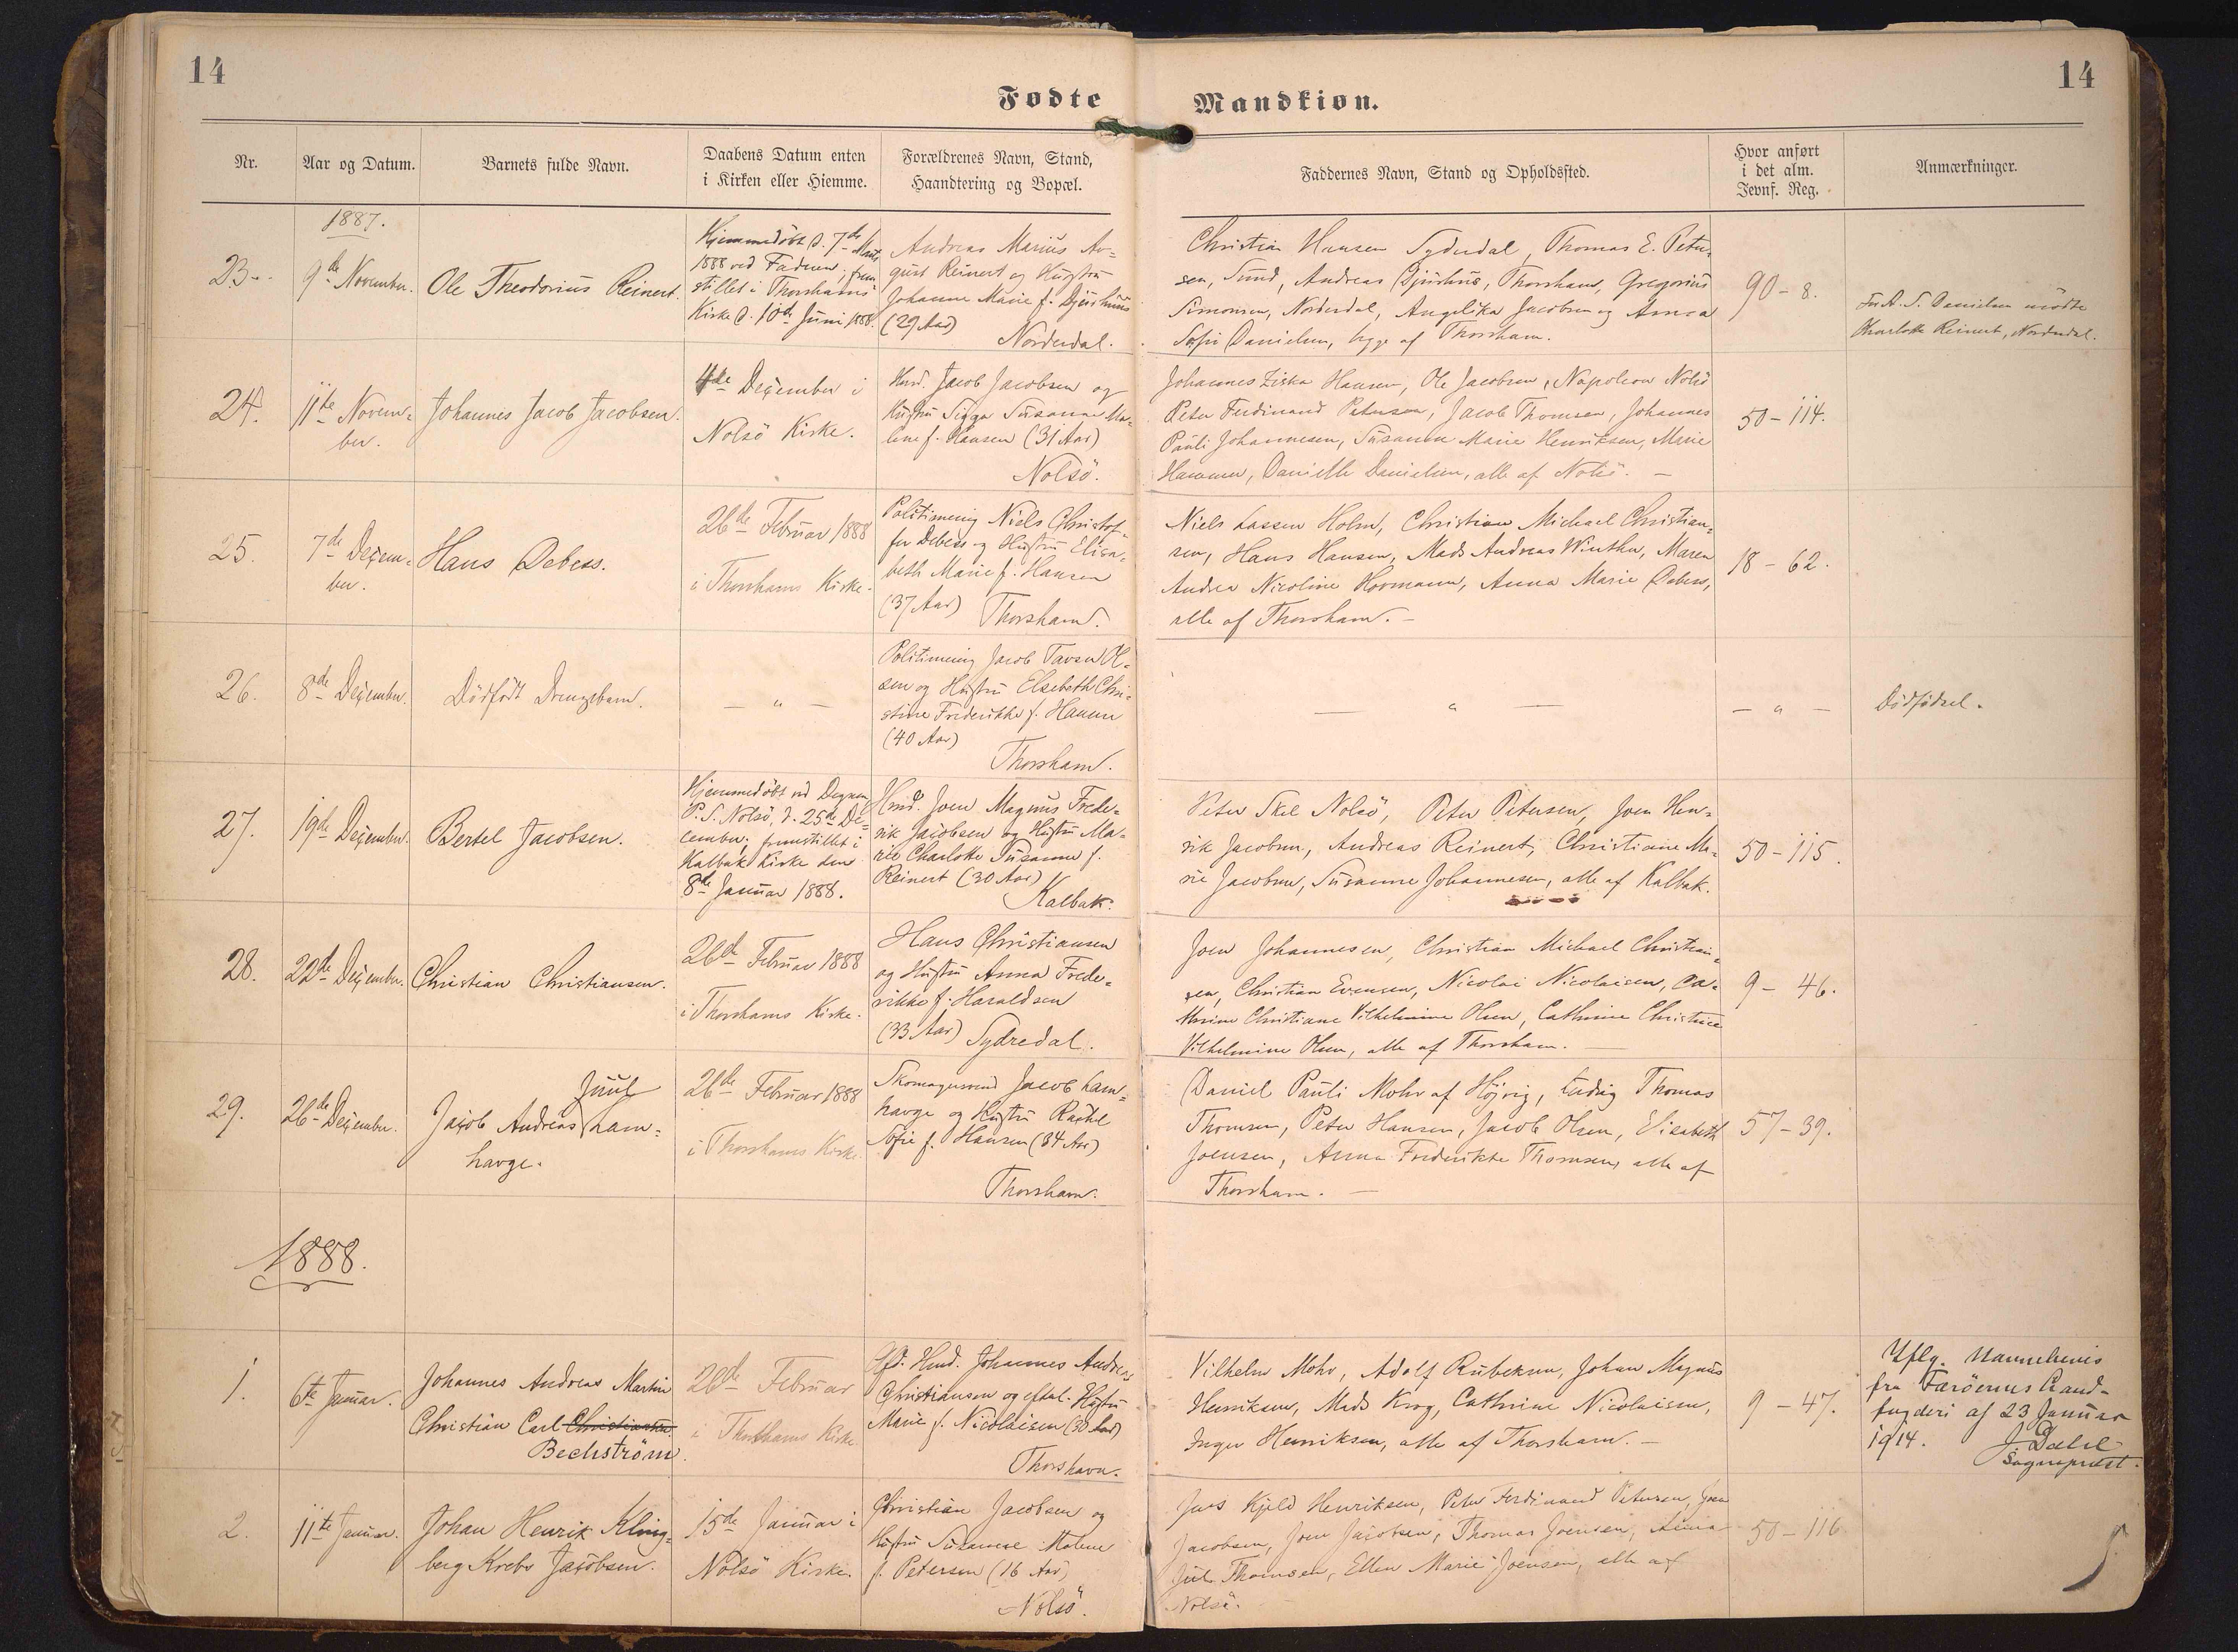 14
14
Fødte
Mandkiøn.
Nr.
Aar og Datum.
Barnets fulde Navn.
Daabens Datum enten
i Kirken eller Hiemme.
Forældrenes Navn, Stand,
Haandtering og Bopæl.
Faddernes Navn, Stand og Opholdssted.
Hvor anført
i det alm.
Jevnf. Reg.
Anmærkninger.
1887.
23.
9de November.
Ole Theodorius Reinert.
Hjemmedöbt d. 7de Marts
1888 ved Faderen; frem
stillet i Thorshavns
Kirke d. 10de Juni 1888.
Andreas Marius Au-
gust Reinert og Hustru
Johanne Marie f. Djurhuus
(29 Aar)
Norderdal.
Christian Hansen Syderdal, Thomas E. Peter-
sen, Sund, Andreas Djurhuus, Thorshavn, Gregorius
Simonsen, Norderdal, Angelika Jacobsen og Anna
Sofie Danielsen, begge af Thorshavn.
90 - 8.
For A. S. Danielsen mödte
Charlotte Reinert, Norderdal.
24.
11te Novem-
ber.
Johannes Jacob Jacobsen.
4de December i
Nolsö Kirke.
Hmd. Jacob Jacobsen og
Hustru Sigga Susanne Ma-
lene f. Hansen (31 Aar)
Nolsö.
Johannes Ziska Hansen, Ole Jacobsen, Napoleon Nolsö
Peter Ferdinand Petersen, Jacob Thomsen, Johannes
Pauli Johannesen, Susanne Marie Henriksen, Marie
Hammer, Danielle Danielsen, alle af Nolsö. —
50 - 114.
25.
7de Decem-
ber.
Hans Debess.
26de Februar 1888
i Thorshavns Kirke.
Politimenig Niels Christof-
fer Debess og Hustru Elisa-
beth Marie f. Hansen
(37 Aar) Thorshavn.
Niels Lassen Holm, Christian Michael Christian-
sen, Hans Hansen, Mads Andreas Winther, Maren
Andrea Nicoline Hovmann, Anna Marie Debess,
alle af Thorshavn. —
18 - 62.
26.
8de December.
Dödfödt Drengebarn.
— " —
Politimenig Jacob Tavsen Ol-
sen og Hustru Elsebeth Chri-
stine Frederikke f. Hansen
(40 Aar)
Thorshavn.
— " —
— " —
Dödfödsel.
27.
19de December.
Bertel Jacobsen.
Hjemmedöbt ved Degnen
P. S. Nolsö, d. 25de De-
cember; fremstillet i
Kalbak Kirke den
8de Januar 1888.
Hmd. Joen Magnus Frede-
rik Jacobsen og Hustru Ma-
rie Charlotte Susanne f.
Reinert (30 Aar)
Kalbak.
Peter Skel Nolsö, Peter Petersen, Joen Hen-
rik Jacobsen, Andreas Reinert, Christiane Ma-
rie Jacobsen, Susanne Johannesen, alle af Kalbak.
50 - 115.
28.
22de December.
Christian Christiansen.
26de Februar 1888
i Thorshavns Kirke.
Hans Christiansen
og Hustru Anna Frede-
rikke f. Haraldsen
(33 Aar) Sydredal.
Joen Johannesen, Christian Michael Christian-
sen, Christian Evensen, Nicolai Nicolaisen, Ca-
thrine Christiane Vilhelmine Olsen, Cathrine Christine
Vilhelmine Olsen, alle af Thorshavn. —
9 - 46.
29.
26de December.
Juul
Jacob Andreas Lam-
havge.
26de Februar 1888
i Thorshavns Kirke.
Skomagersvend Jacob Lam-
havge og Hustru Rachel
Sofie f. Hansen (34 Aar)
Thorshavn.
Daniel Pauli Mohr af Höjvig, Ludvig Thomas
Thomsen, Peter Hansen, Jacob Olsen, Elisabeth
Joensen, Anna Frederikke Thomsen, alle af
Thorshavn. —
57 - 39.
1888.
1.
6te Januar.
Johannes Andreas Martin
Christian Carl Christiansen.
Bechström.
26de Februar
i Thorshavns Kirke.
Hmd. Johannes Andreas
Christiansen og Hustru
Marie f. Nicolaisen (30 Aar)
Thorshavn.
Vilhelm Mohr, Adolf Rubeksen, Johan Magnus
Henriksen, Mads Krog, Cathrine Nicolaisen,
Inger Henriksen, alle af Thorshavn. —
9 - 47.
Iflg. Navnebevis
fra Færöernes Land-
fogderi af 23 Januar
1914. J. Dahl
Sognepræst.
2.
11te Januar.
Johan Henrik Kling-
berg Krebs Jacobsen.
15de Januar i
Nolsö Kirke.
Christian Jacobsen og
Hustru Susanne Malene
f. Petersen (16 Aar)
Nolsö.
Jens Kjeld Henriksen, Peter Ferdinand Petersen, Joen
Jacobsen, Joen Jacobsen, Thomas Joensen, Anna
Thomsen, Ellen Marie Joensen, alle af
Nolsö.
50 - 116